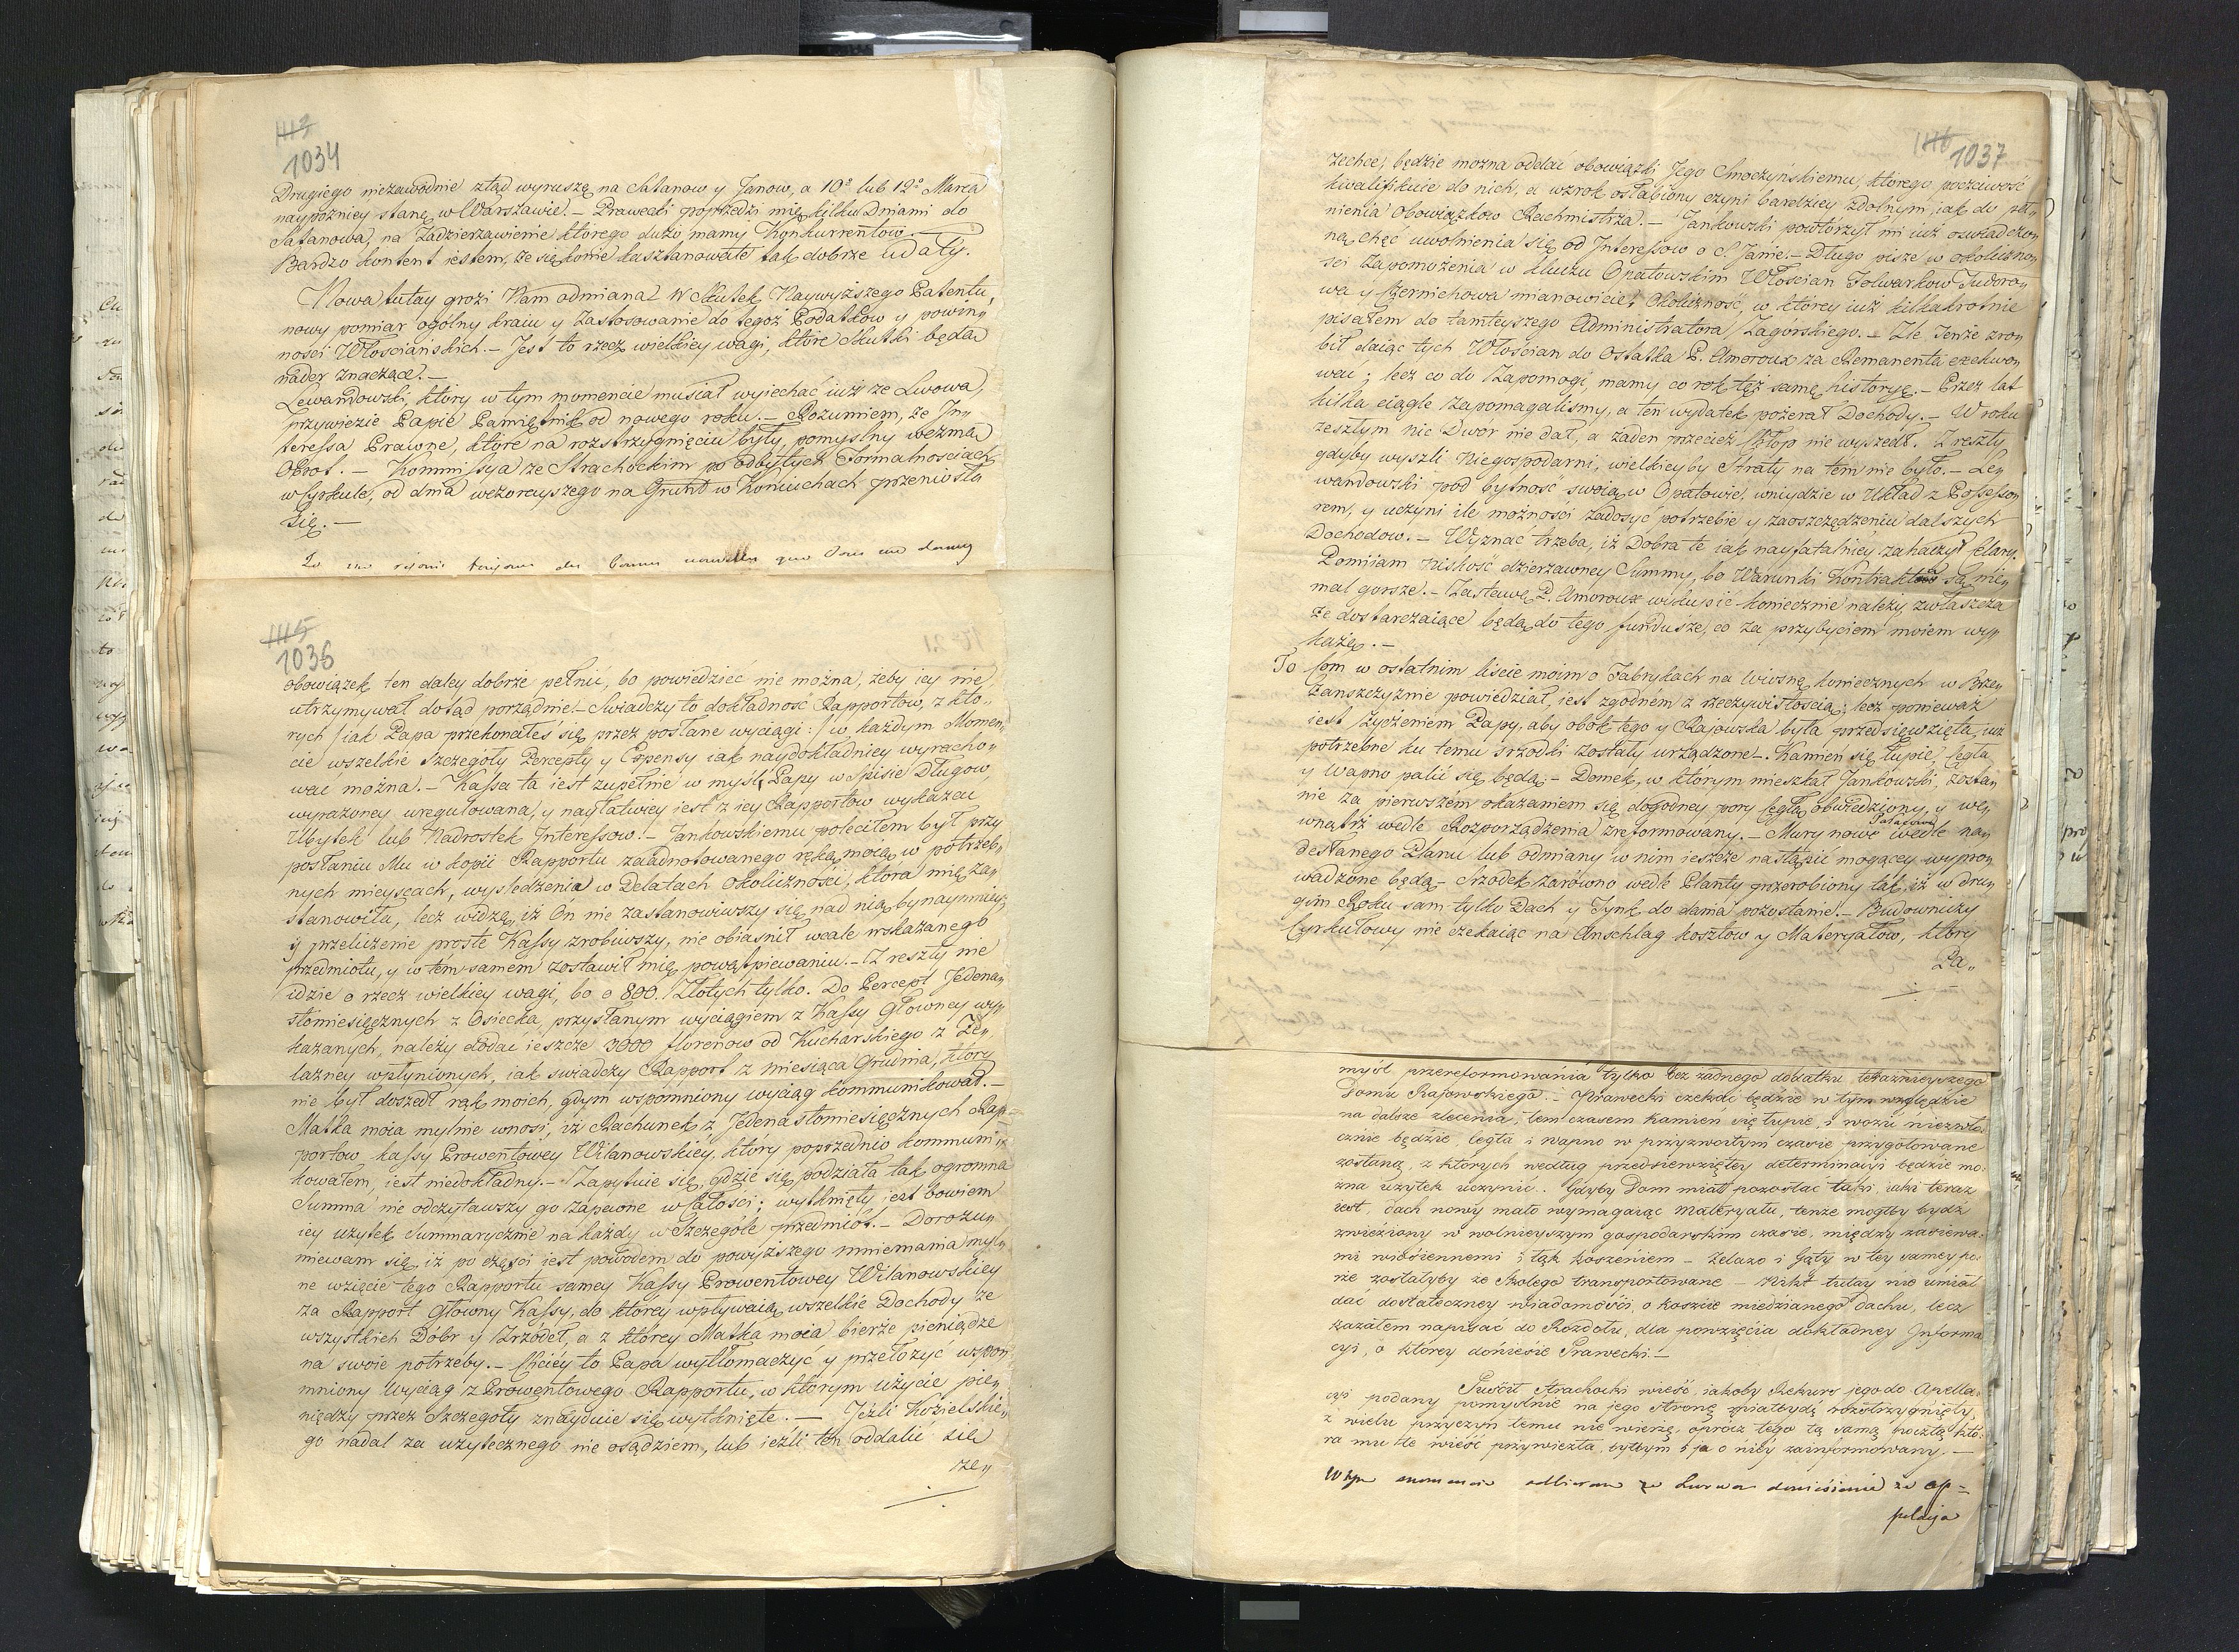 1113
1034
Drugiego niezawodnie ztąd wyruszę na Satanow y Janow, a 10º lub 12º Marca
naypozniey stanę w Warszawie. – Prawecki poprzedzi mię kilku Dniami do
Satanowa, na Zadzierzawienie ktorego dużo mamy Konkurrentow. –
Bardzo kontent iestem, że się konie kasztanowate tak dobrze udały.
Nowa tutay grozi Nam odmiana! W Skutek Naywyższego Patentu,
nowy pomiar ogólny kraiu y Zastosowanie do tegoż Podatków y powin„
ności Włościańskich. – Jest to rzecz wielkiey wagi, które Skutki będą
nader znaczące. –
Lewandowski, który w tym momencie musiał wyiechać iuż ze Lwowa,
przywiezie Papie Pamiętnik od nowego roku. – Rozumiem, że In„
teressa Prawne, które na rozstrzygnięciu były, pomyslny wezmą
Obrot. – Kommissya ze Strachockim po odbytych Formalnosciach
w Cyrkule, od dnia wczorayszego na Grunt w Koniuchach przeniosła
się. –
1115
1036
obowiązek ten daley dobrze pełnić, bo powiedziec nie można, żeby iey nie
utrzymywał dotąd porządnie! – Swiadczy to dokładność Rapportow, z któ„
rych /: iak Papa przekonałeś się przez posłane wyciągi :/ w każdym Momen„
cie wszelkie Szczegóły Percepty y Expensy iak naydokładniey wyracho„
wać można. – Kassa ta iest zupełnie w mysli Papy w Spisie Długow
wyrażoney uregulowana, y nayłatwiey iest z iey Rapportow wykazać
Ubytek lub Nadrostek Interessow. – Jankowskiemu poleciłem był przy
posłaniu Mu w kopii Rapportu zaadnotowanego ręką moią w potrzeb„
nych mieyscach, wysledzenia w Delatach okoliczności, która mię za„
stanowiła, lecz widzę, iż On nie zastanowiwszy się nad nią bynaymniey
y przeliczenie proste Kassy zrobiwszy, nie obiasnił wcale wskazanego
przedmiotu, y w tém samem zostawił mię powątpiewaniu. – Z reszty nie
idzie o rzecz wielkiey wagi, bo o 800. Złotych tylko. Do Percept Jedena„
stomiesięcznych z Osiecka, przysłanym wyciągiem z Kassy Głowney wy„
kazanych, należy dodać ieszcze 3000 florenow od Kucharskiego z Że„
lazney wpłynionych, iak swiadczy Rapport z miesiąca Grudnia, który
nie był doszedł rąk moich, gdym wspomniony wyciąg kommunikował. –
Matka moia mylnie wnosi, iż Rachunek z Jedenastomiesięcznych Rap„
portow kassy Prowentowey Wilanowskiéy, który poprzednio kommuni„
kowałem, iest niedokładny. – Zapytuie się, gdzie się podziała tak ogromna
Summa nie odczytawszy go zapewne w całości; wytknięty iest bowiem
iey użytek Summarycznie na każdy w Szczególe przedmiot. – Dorozu„
miewam się, iż po części iest powodem do powyższego mniemania myl„
ne wzięcie tego Rapportu samey Kassy Prowentowey Wilanowskiey
za Rapport Głowny Kassy, do którey wpływaią wszelkie Dochody ze
wszystkich Dóbr y Zrzódeł, a z którey Matka moia bierze pieniądze
na swoie potrzeby. – Chciéy to Papa wytłomaczyć y przełożyć wspom„
mniony Wyciąg z Prowentowego Rapportu, w którym użycie pie„
niędzy przez Szczegóły znayduie się wytknięte. – Jeżli Kozielskie„
go nadal za użytecznego nie osądziem, lub ieżli ten oddalić się
ze„
1116 1037
zechce, będzie można oddać obowiązki Jego Smoczyńskiemu, którego poczciwość
kwalifikuie do nich, a wzrok osłabiony czyni bardziey zdolnym, iak do peł„
nienia Obowiązkow Rachmistrza. – Jankowski powtórzył mi iuż oswiadczo„
ną chęć uwolnienia się od Interessow o S. Janie. – Długo pisze w okoliczno„
sci Zapomożenia w kluczu Opatowskim Włoscian Folwarkow Tudoro„
wa y Czerniechowa mianowicie; Okoliczność, w którey iuż kilkakrotnie
pisałem do tamteyszego Administratora Zagorskiego. – Zle Tenże zro„
bił daiąc tych Włościan do Ostatka P. Amoroux za Remanenta exekwo„
wać; lecz co do Zapomogi, mamy co rok też samę historyę. – Przez lat
kilka ciągle Zapomagalismy, a ten wydatek pożerał Dochody. – W roku
zeszłym nic Dwor nie dał, a żaden przecież Chłop nie wyszedł. Z reszty
gdyby wyszli Niegospodarni, wielkieyby Straty na tém nie było. – Le„
wandowski pod bytność swoią w Opatowie, wniydzie w Układ z Possesso„
rem, y uczyni ile możności zadosyć potrzebie y zaoszczędzeniu dalszych
Dochodow. – Wyznać trzeba, iż Dobra te iak nayfatalniey zahaczył
Pomiiam Niskość dzierzawney Summy, bo Warunki Kontrakta są nie„
mal gorsze. – Zastawę P. Amoroux wykupić koniecznie należy zwłaszcza
że dostarczaiące będą do tego fundusze, co za przybyciem moiem wy„
każę. –
To Com w ostatnim liście moim o Fabrykach na Wiosnę koniecznych w Brze„
żanszczyznie powiedział, iest zgodném z rzeczywistością; lecz ponieważ
iest Życzeniem Papy, aby obok tego y Rajowska była przedsięwzięta, iuż
potrzebne ku temu srzodki zostały urządzone. – Kamień się łupie, Cegła
y Wapno palić się będą; – Domek, w ktorym mieszkał Jankowski, zosta„
nie za pierwszém okazaniem się dogodney pory Cegłą obwiedziony, y we„
wnątrz wedle Rozporządzenia zreformowany. – Mury nowe Pałacowe wedle na„
desłanego Planu lub odmiany w nim ieszcze nastąpić mogącey wypro„
wadzone będą – Srzodek zarówno wedle Planty przerobiony tak, iż w dru„
gim Roku sam tylko Dach y Tynk do dania pozostanie. – Budowniczy
Cyrkułowy nie czekaiąc na Anschlag kosztow y Materyałow, który
Pa„
myśl przereformowania tylko bez żadnego dodatku teraznieyszego
Domu Rajowskiego. – Prawecki czekać będzie w tym względzie
na dalsze zlecenia, tem czasem kamień się łupie, i wozu niezwło„
cznie będzie, cegła i wapno w przyzwoitym czasie przygotowane
zostaną, z których według przedsiewziętey determinacyi będzie mo„
żna użytek uczynić. Gdyby Dom miał pozostać taki, iaki teraz
iest, dach nowy mało wymagaiąc Materyału, tenże mogłby bydź
zwieziony w wolnieyszym gospodarskim czasie, między zasiewa„
mi wiosiennemi i łąk koszeniem – żelazo i Gąty w tey samey po„
rze zostałyby ze Skolego transportowane – Nikt tutay nie umiał
dać dostateczney wiadomości, o koszcie miedzianego dachu, lecz
kazałem napisać do Rozdołu, dla powzięcia dokładney Informa
cyi, o którey doniesie Prawecki. –
Puścił Strachocki wieść, iakoby Rekurs jego do Apella„
cyi podany pomyslnie na jego stronę rozstrzygnięty,
z wielu przyczyn temu nie wierzę, oprócz tego tą samą pocztą któ„
ra mu tę wieść przywiozła, byłbym i ja o niéy zainformowany. –
W tym momencie odbieram ze Lwowa doniesienie że ap=
pelacja